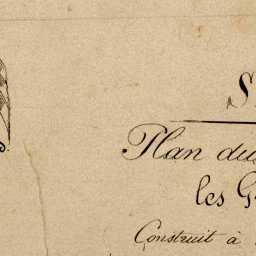 Plan du
les
Construit à